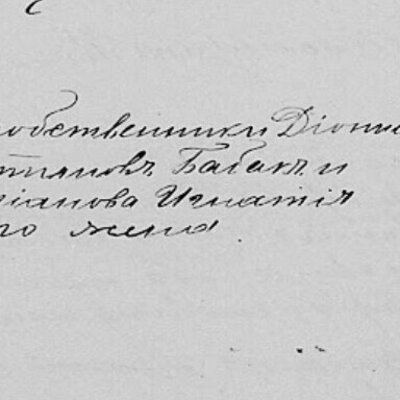 обственники Діони
тяновъ Бабакъ и
іанова Игнатія
го жена